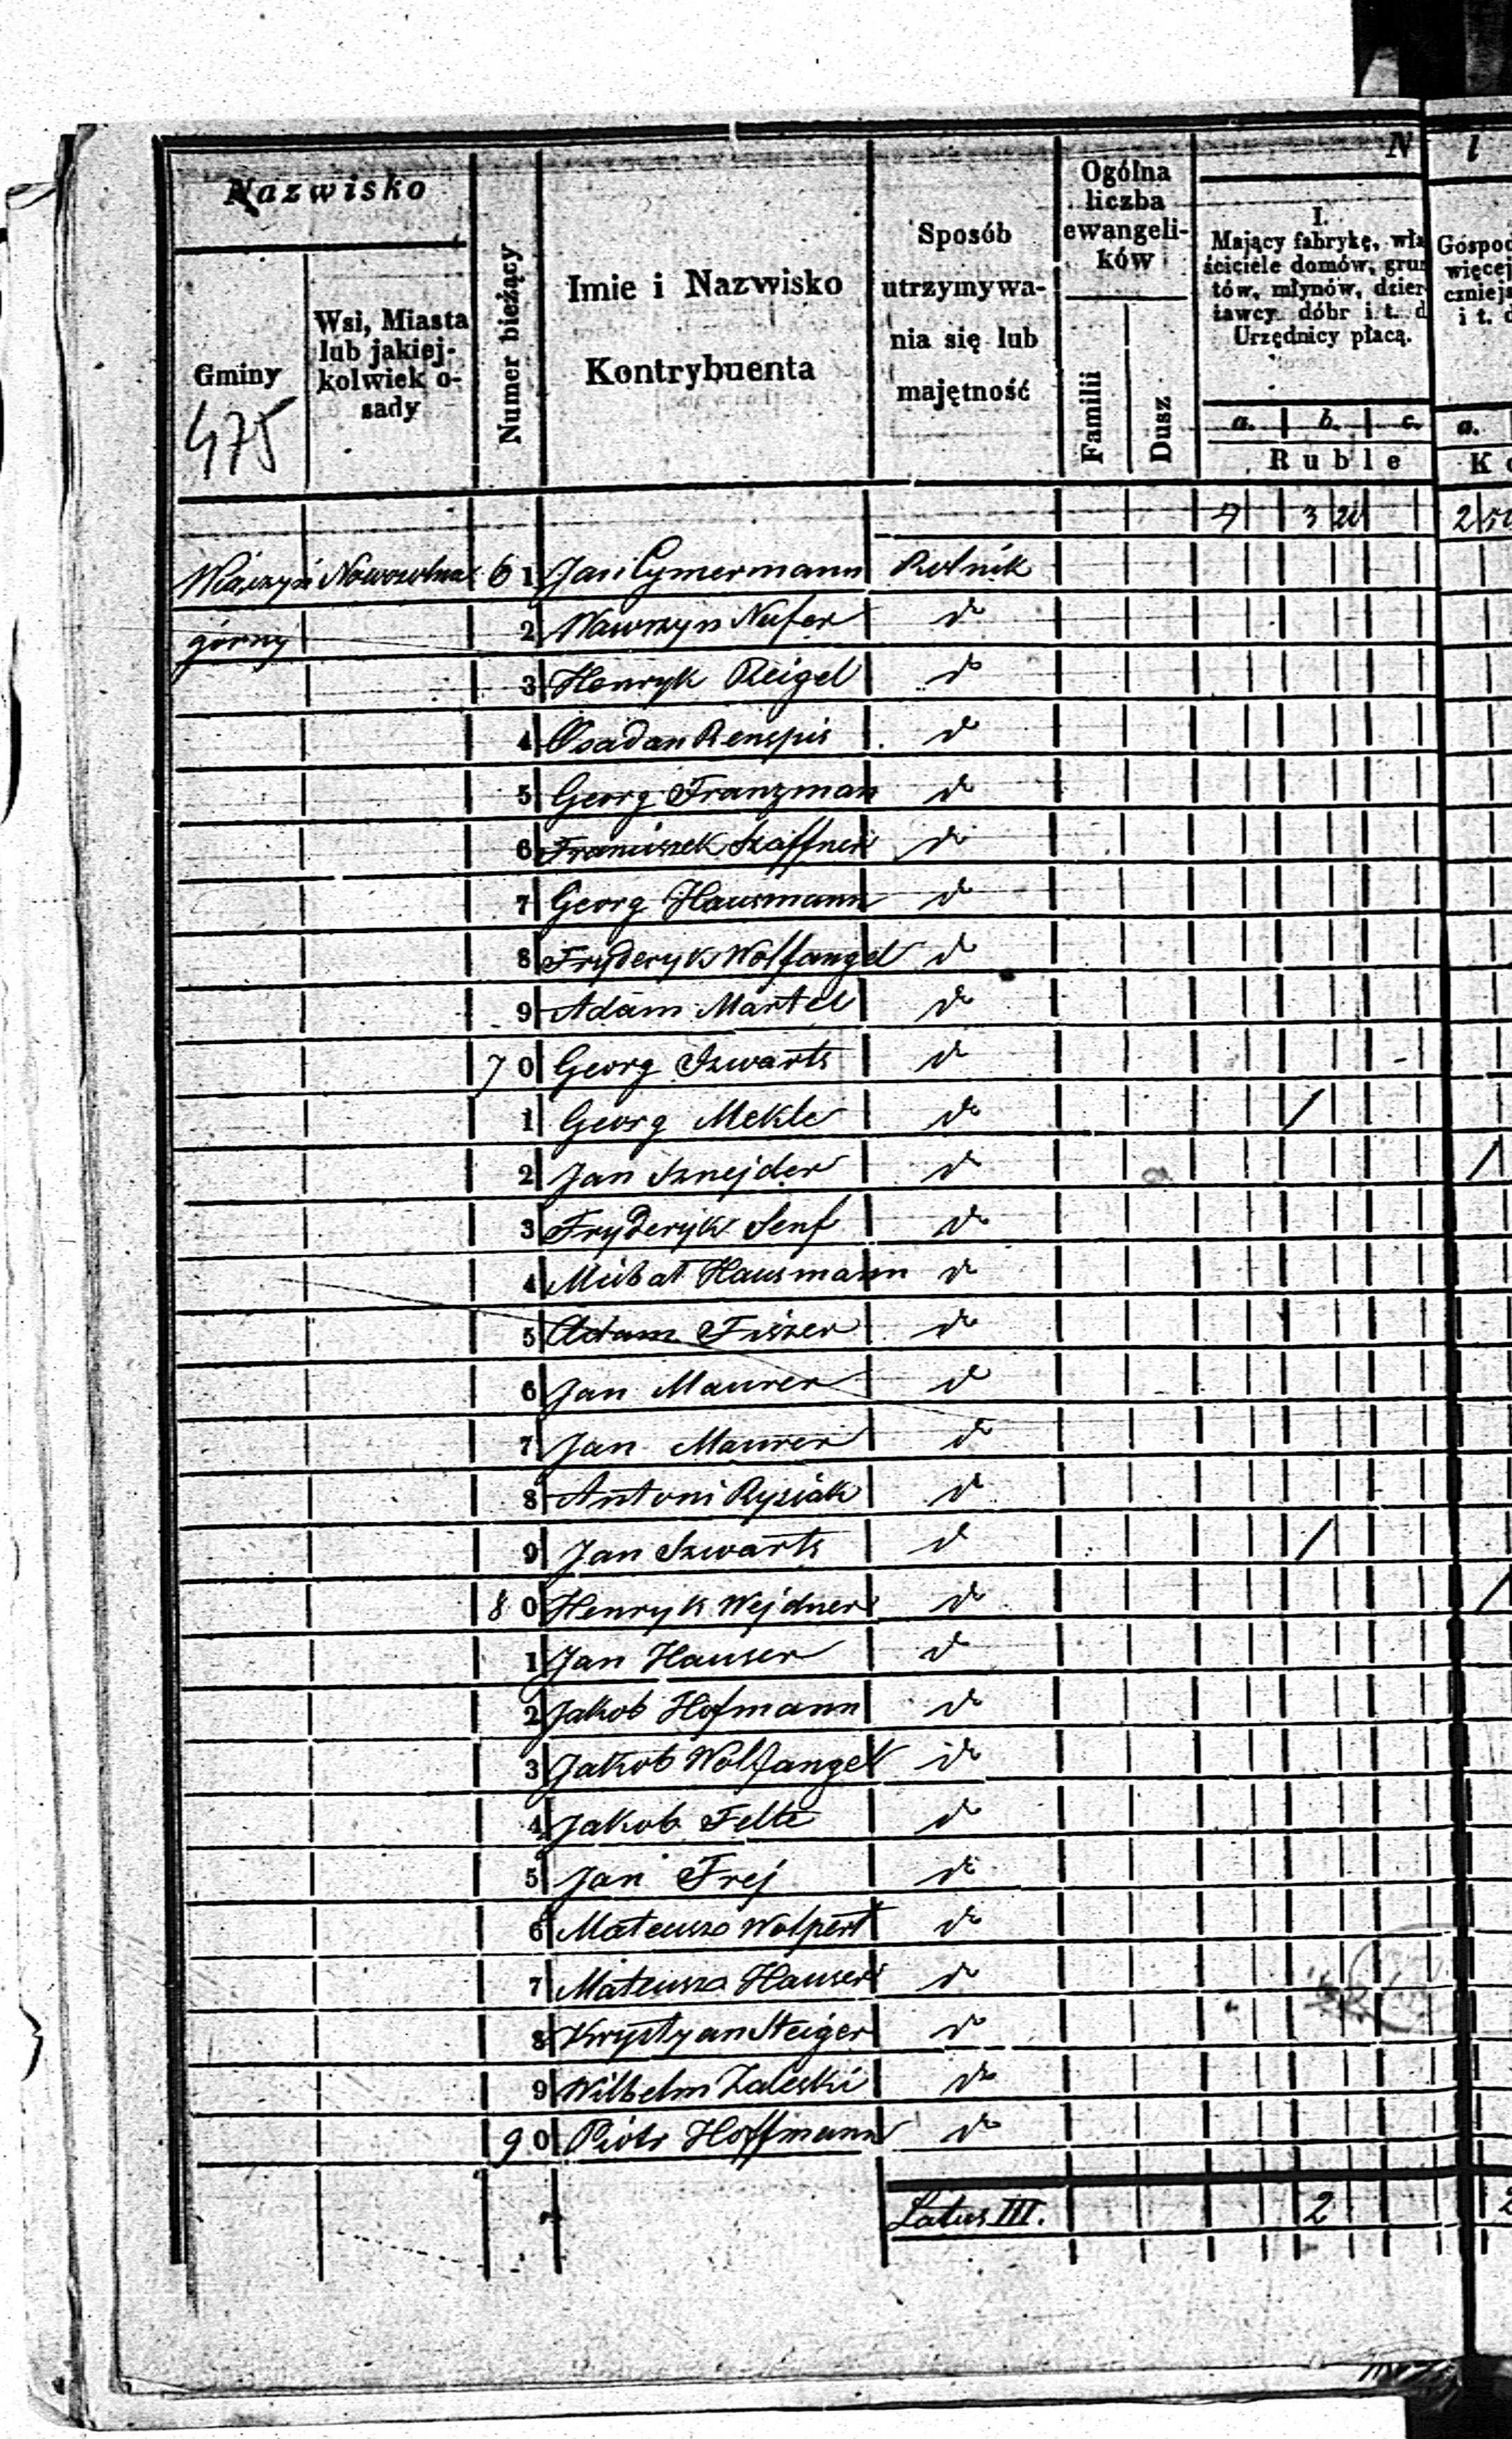 Nazwisko
Gminy
475
Wsi, Miasta
lub jakiej-
kolwiek o-
sady
Numer bieżący
Imie i Nazwisko
Kontrybuenta
Sposób
utrzymywa-
nia się lub
majętność
Ogólna
liczba
ewangeli-
ków
Familii
Dusz
N
I.
Mający fabrykę, wła
ściciele domów, grun
tów, młynów, dzier
żawcy dóbr i t. d
Urzędnicy płacą.
a. b. c.
Ruble
l
Gospod
więcej
czniejs
i t. d
a.
K
3 20 2 50
Wiączyń Nowosolna 61 Jan Cymermann Rolnik
górny 2 Wawrzyn Nufer do
3 Henryk Reigel do
4 Osadan Renspis do
5 Georg Franzman do
6 Franciszek Szaffner do
7 Georg Hausmann do
8 Fryderyk Wolfangel do
9 Adam Martel do
70 Georg Szwarts do
1 Georg Mekle do /
2 Jan Sznejder do /
3 Fryderyk Senf do
4 Michał Hausmann do
5 Adam Fiszer do
6 Jan Maurer do
7 Jan Maurer do
8 Antoni Rysiak do
9 Jan Szwarts do /
80 Henryk Wejdner do /
1 Jan Hauser do
2 Jakob Hofmann do
3 Jakob Wolfangel do
4 Jakob Felte do
5 Jan Frej do
6 Mateusz Wolpert do
7 Mateusz Hauser do
8 Krystyan Steiger do
9 Wilhelm Zaleski do
90 Piotr Hoffmann do
Latus III. 2 2